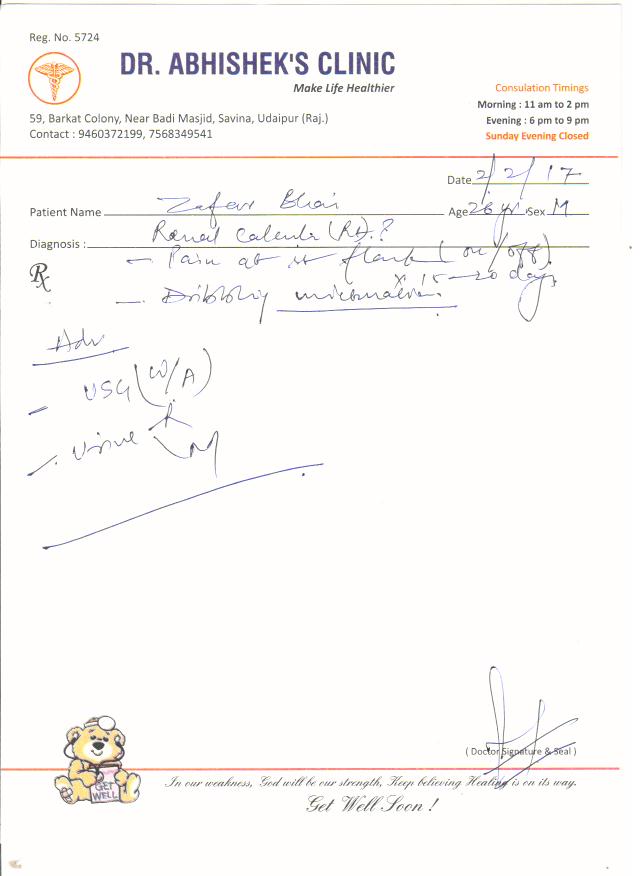 Reg. No. 5724
DR. ABHISHEK'S CLINIC
Make Life Healthier
59, Barkat Colony, Near Badi Masjid, Savina, Udaipur (Raj.)
Contact : 9460372199, 7568349541
Consulation Timings
Morning : 11 am to 2 pm
Evening : 6 pm to 9 pm
Sunday Evening Closed
Date 2/2/17
Patient Name Bhai Age 26 yr. Sex M
Diagnosis : Renal Calculi (Rt).?
Rx
- Pain at rt flank (on/off)
x 15-20 days
- Dribbling micturation.
Adv
- USG (W/A)
- Urine R
M
( Doctor Signature & Seal )
GET WELL
In our weakness, God will be our strength, Keep believing Healing is on its way.
Get Well Soon !